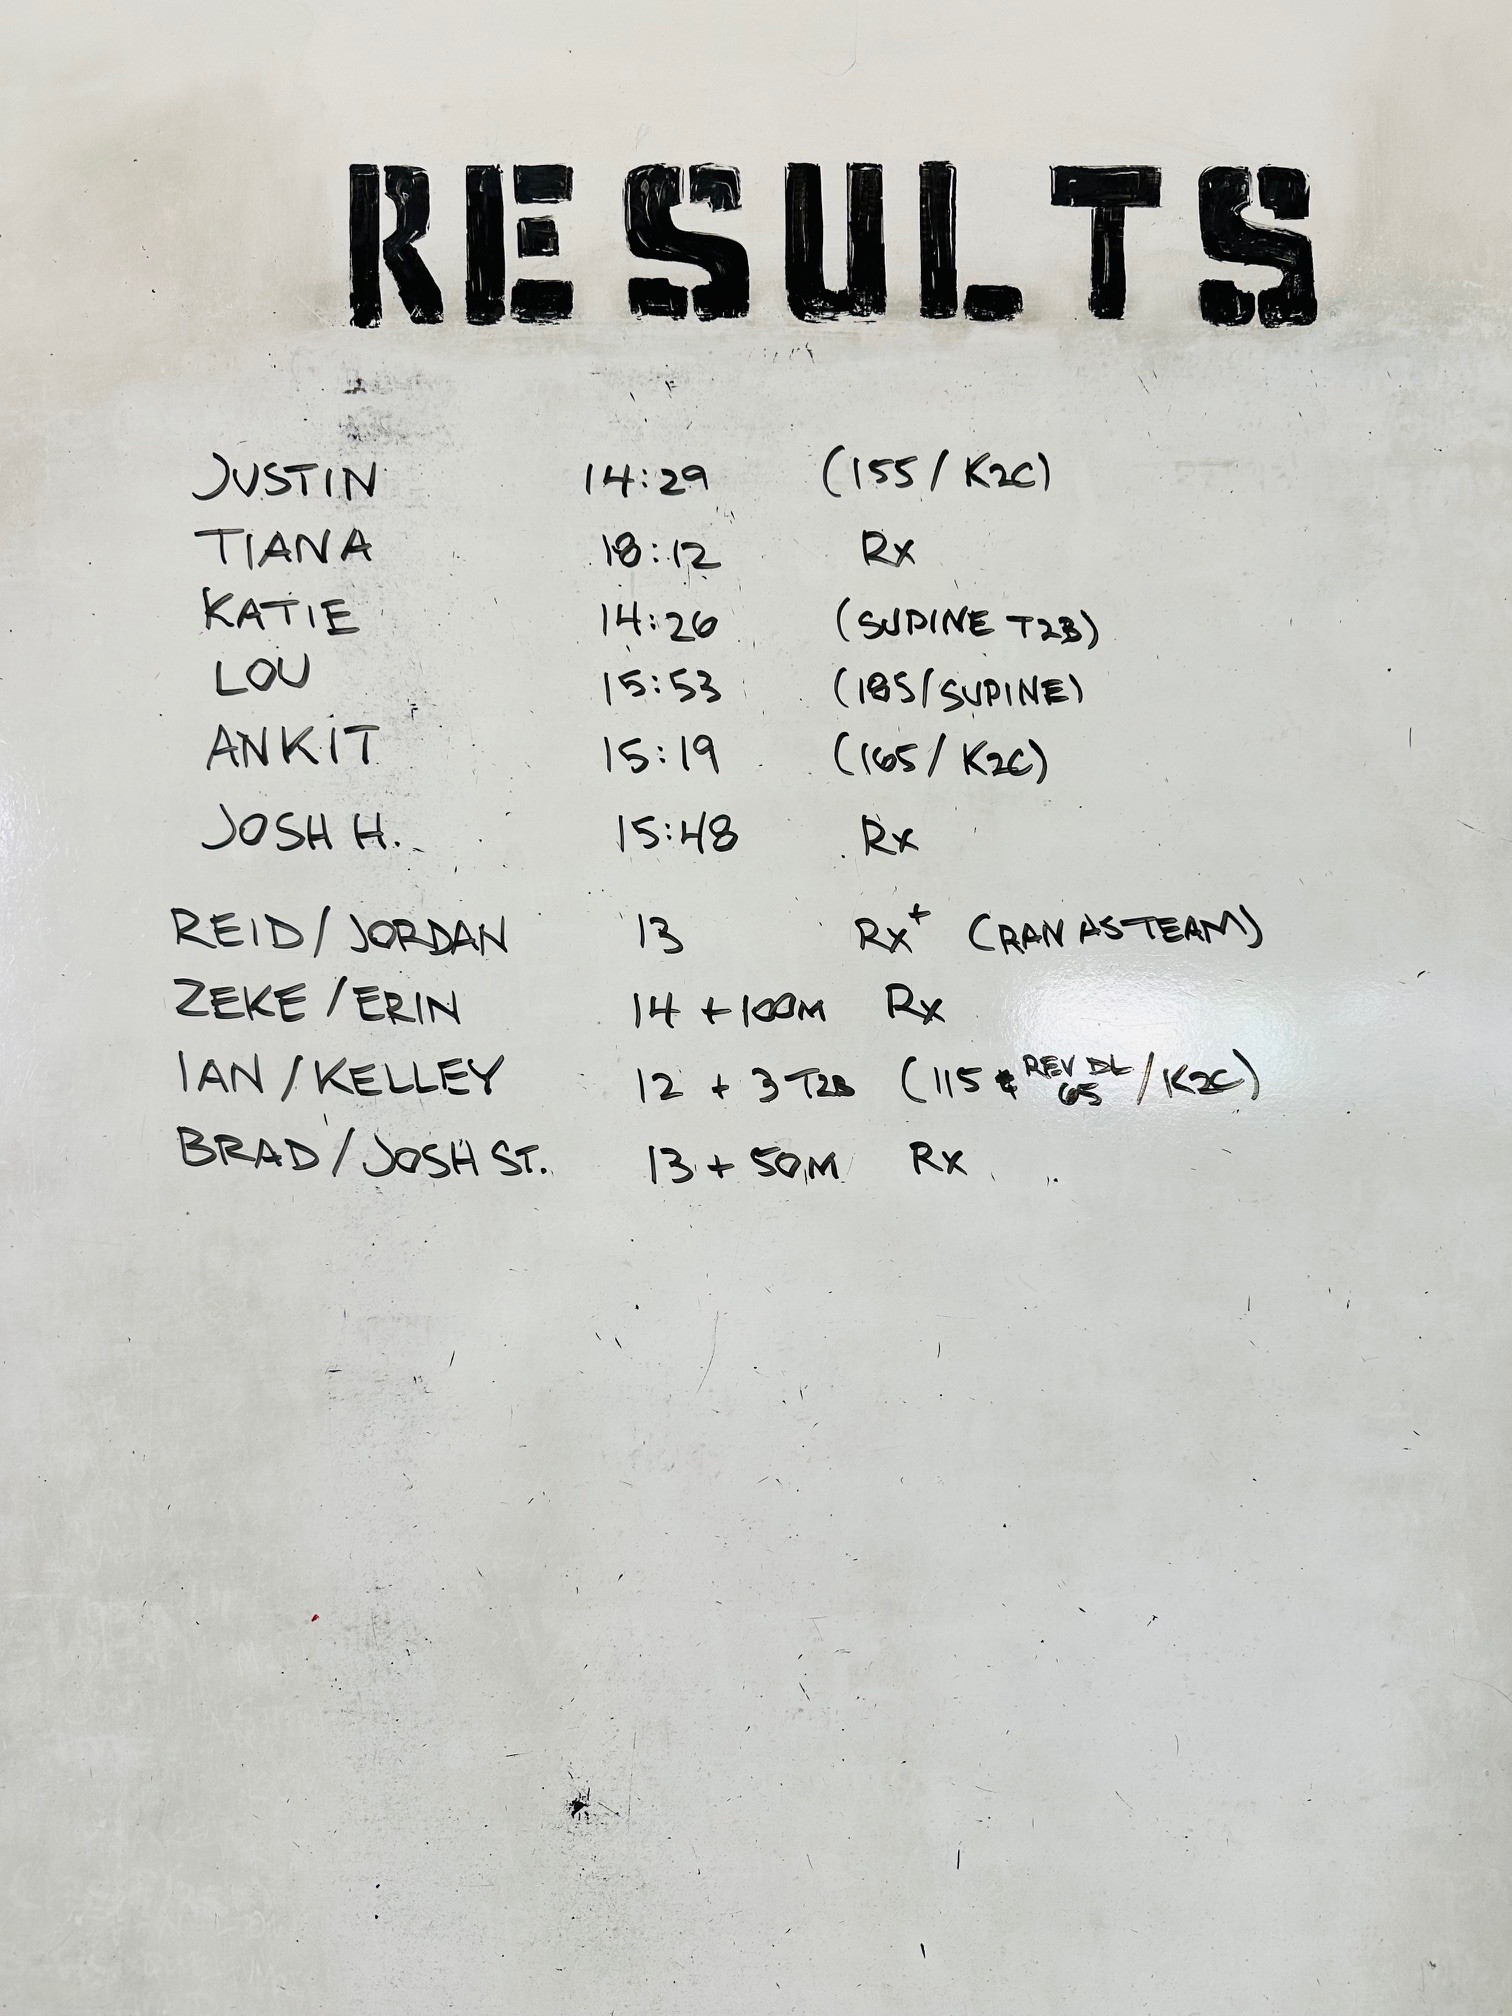 RESULTS
JUSTIN 14:29 (155/K2C)
TIANA 18:12 Rx
KATIE 14:26 (SUPINE T2B)
LOU 15:53 (185/SUPINE)
ANKIT 15:19 (165/K2C)
JOSH H. 15:48 Rx
REID/JORDAN 13 Rx+ (RAN AS TEAM)
ZEKE/ERIN 14 +100M Rx
IAN/KELLEY 12 + 3 T2B (115 & REV DL 65/K2C)
BRAD/JOSH ST. 13 + 50M Rx